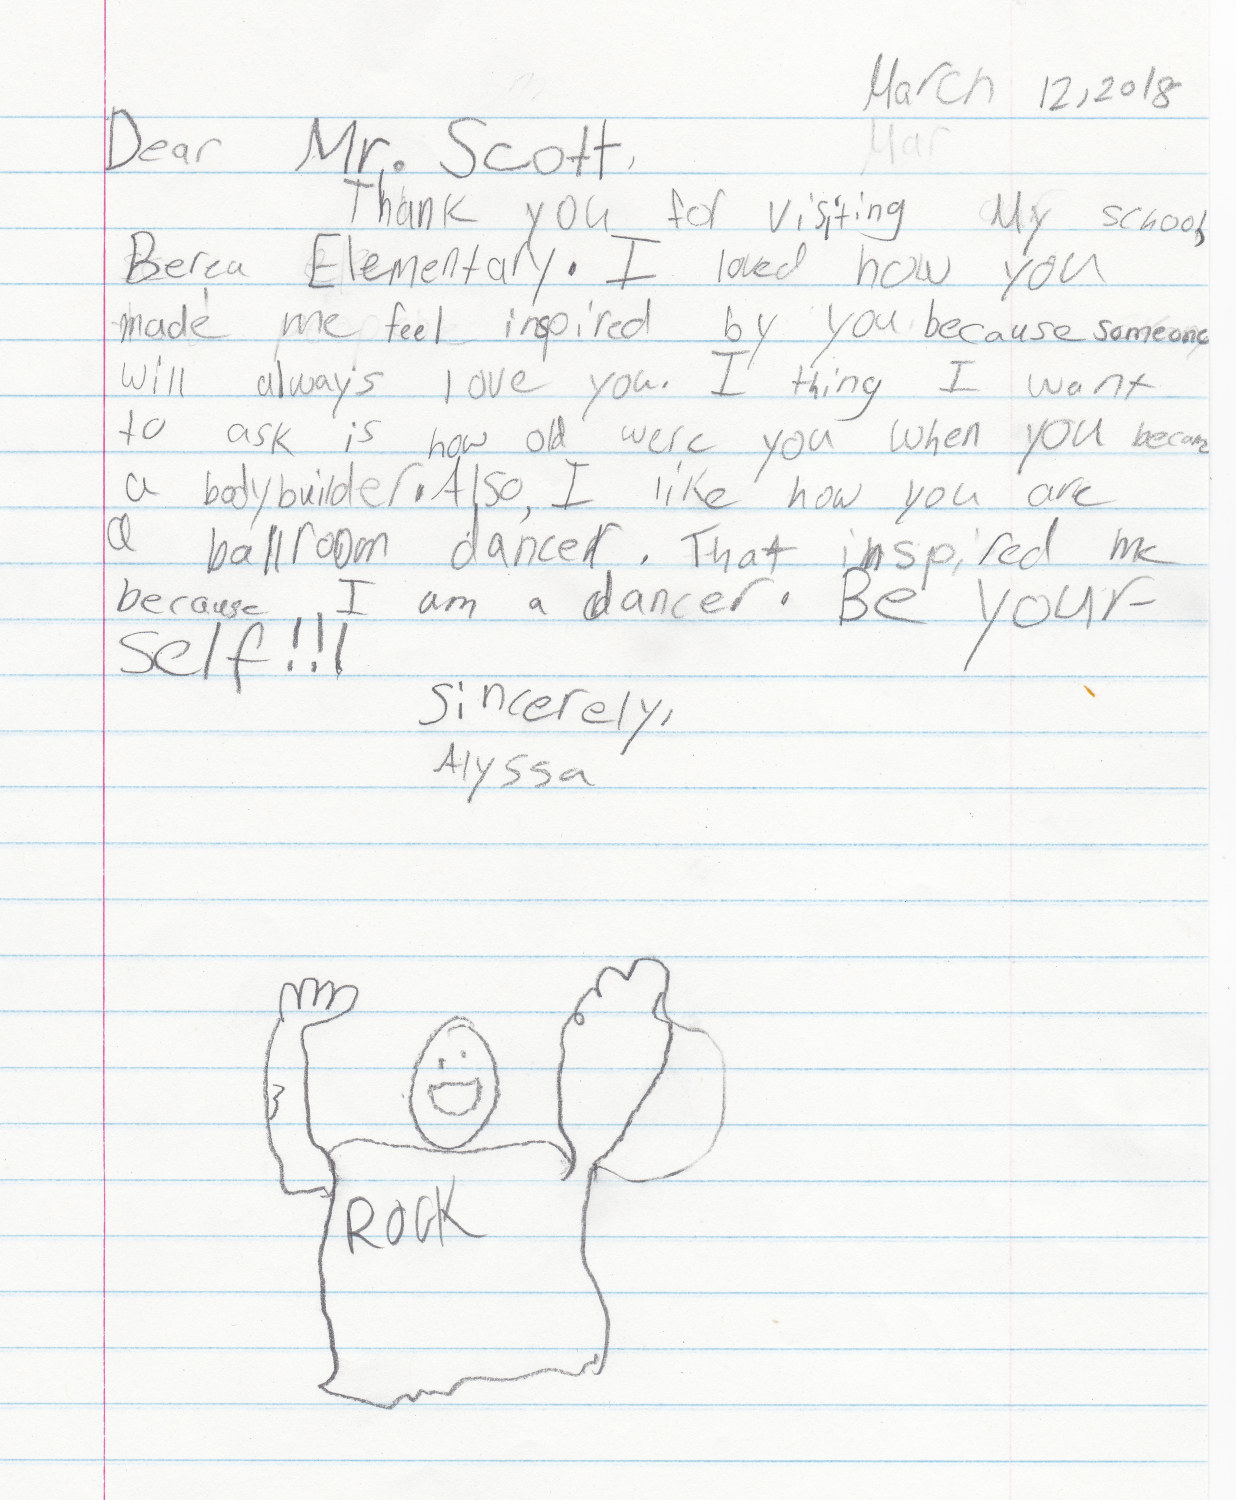 March 12, 2018
Mar
Dear Mr. Scott,
Thank you for visiting My school,
Berea Elementary. I loved how you
made me feel inspired by you because someone
will always love you. I thing I want
to ask is how old were you when you became
a bodybuilder. Also, I like how you are
a ballroom dancer. That inspired me
because I am a dancer. Be your-
self!!!
Sincerely,
Alyssa
ROCK